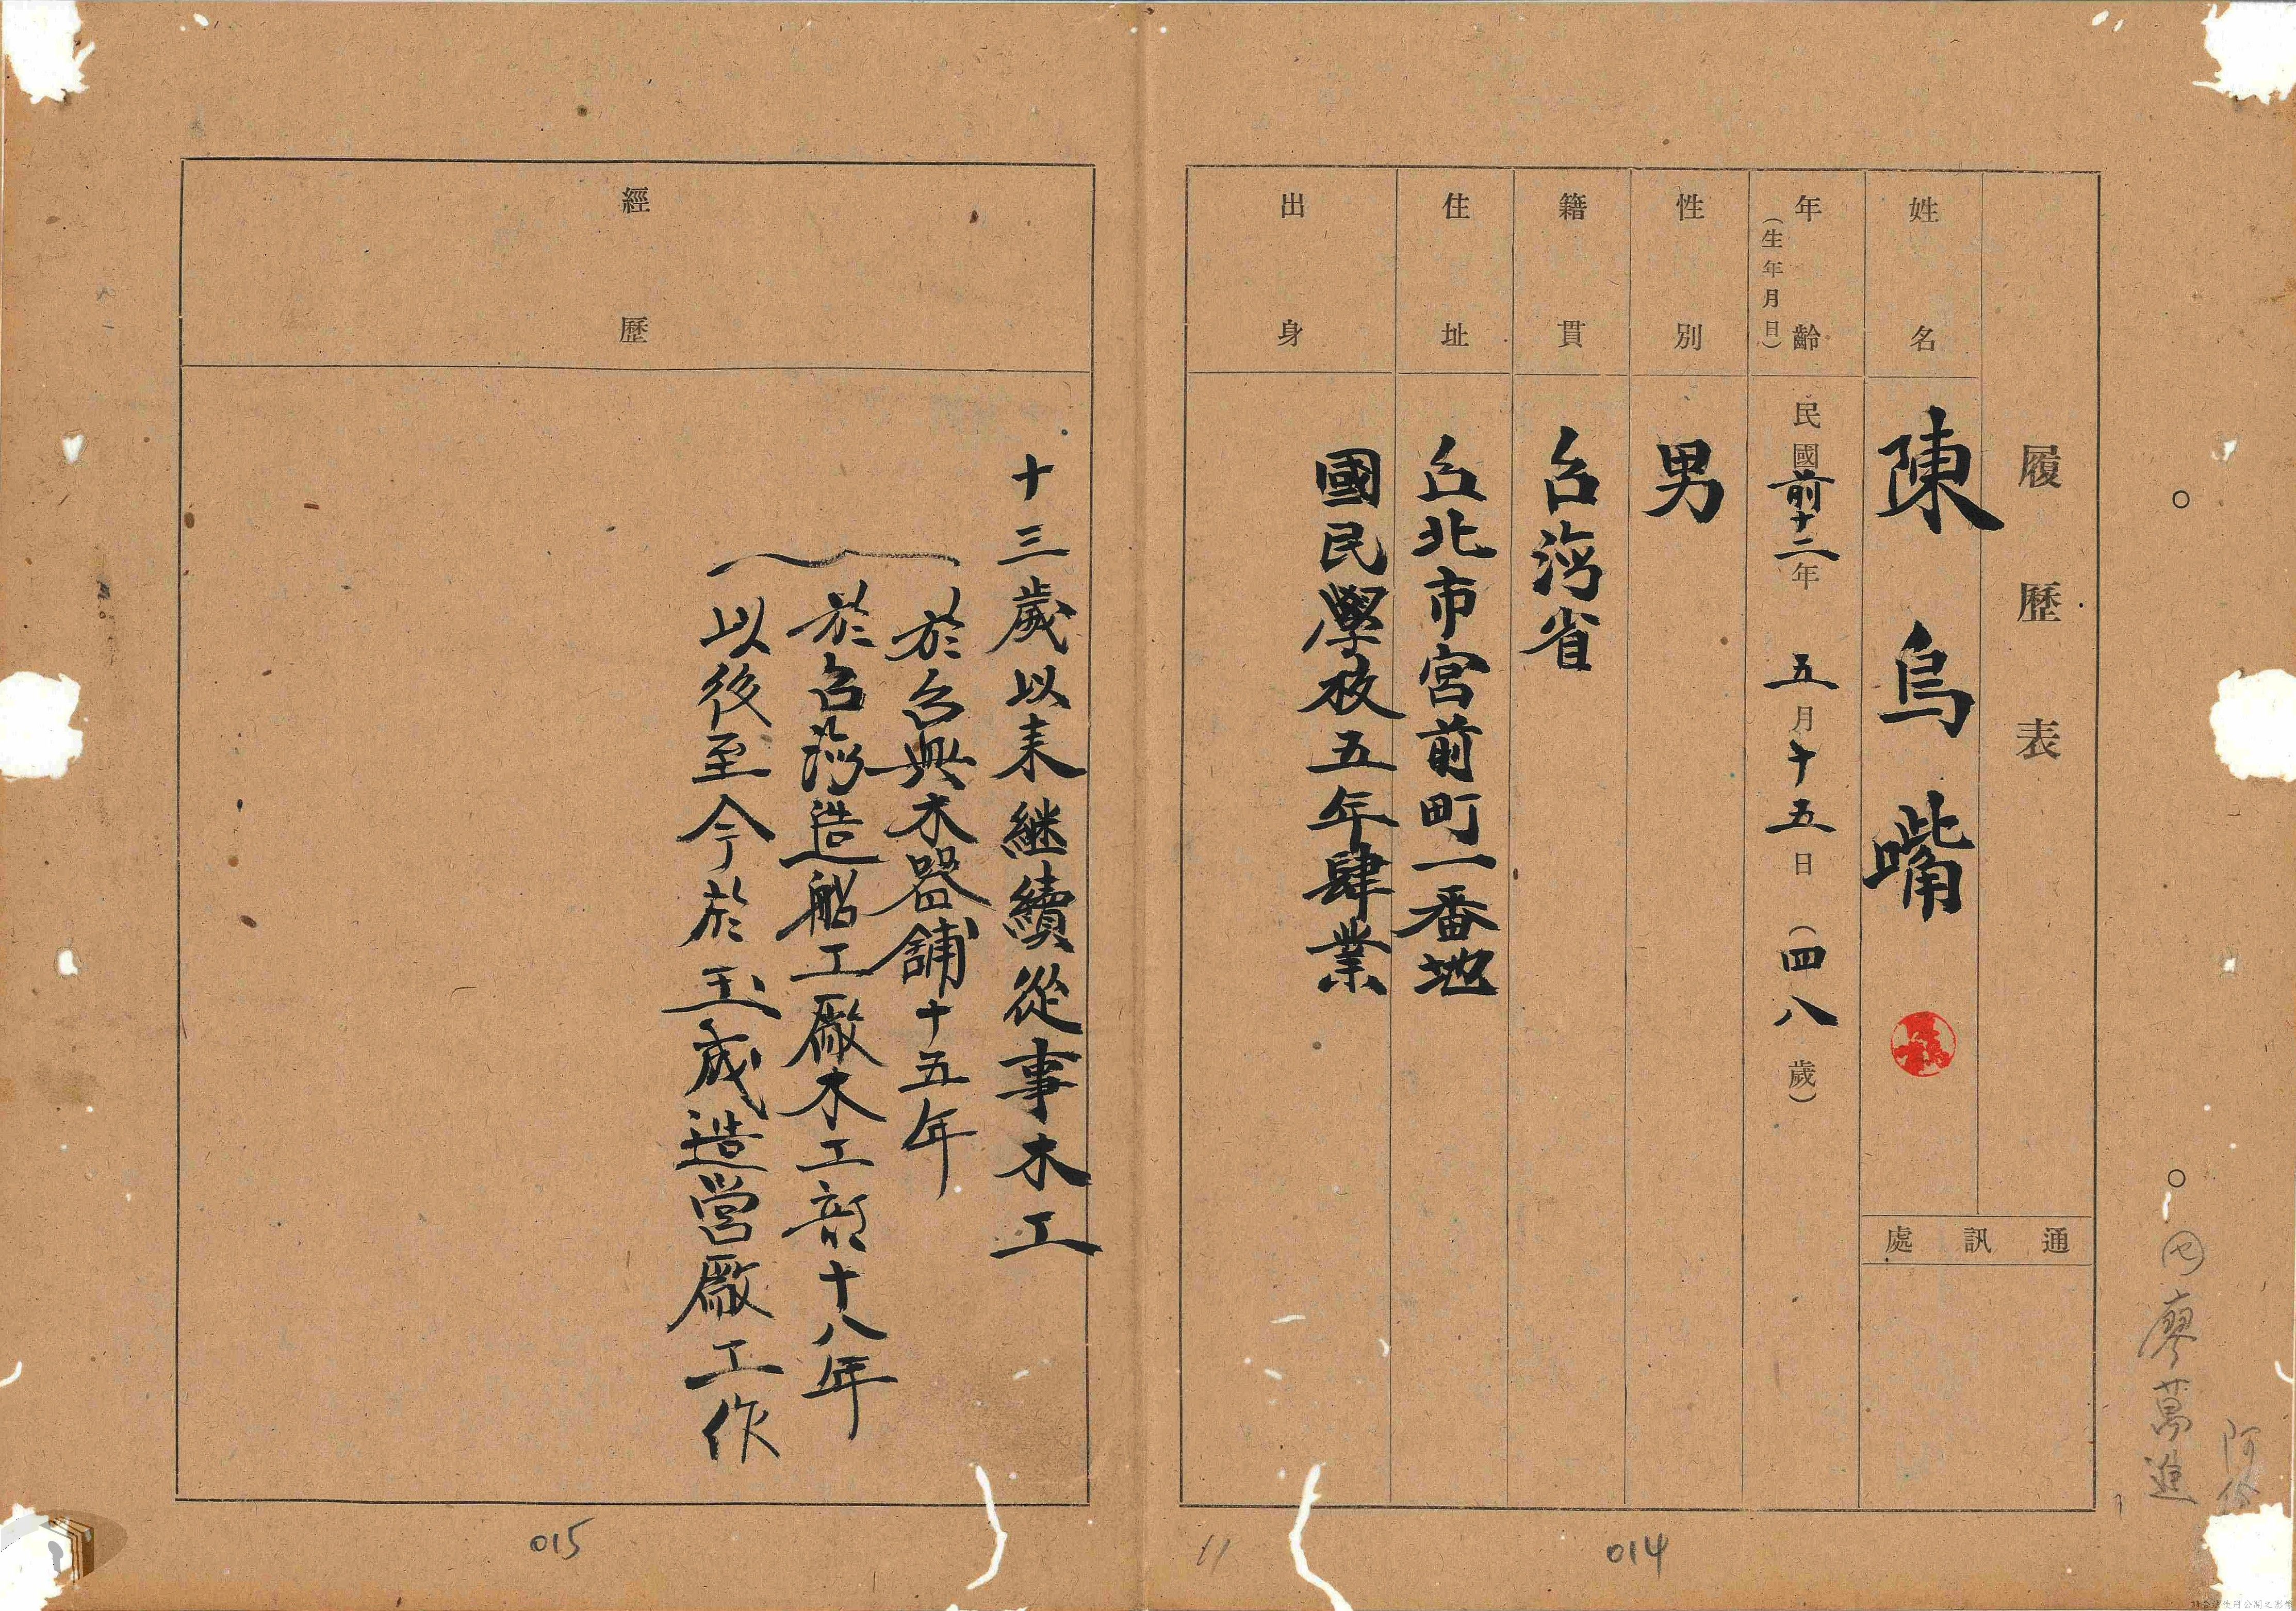 履歷表
通訊處
姓名
陳烏嘴
年齡
(生年月日)
民國前十二年 五月十五日 (四八歲)
性別
男
籍貫
台灣省
住址
台北市宮前町一番地
出身
國民學校五年肄業
經歷
十三歲以来継續從事木工
於台興木器舖十五年
於台湾造船工廠木工部十八年
以後至今於玉成造營廠工作
廖萬進
014
11
015